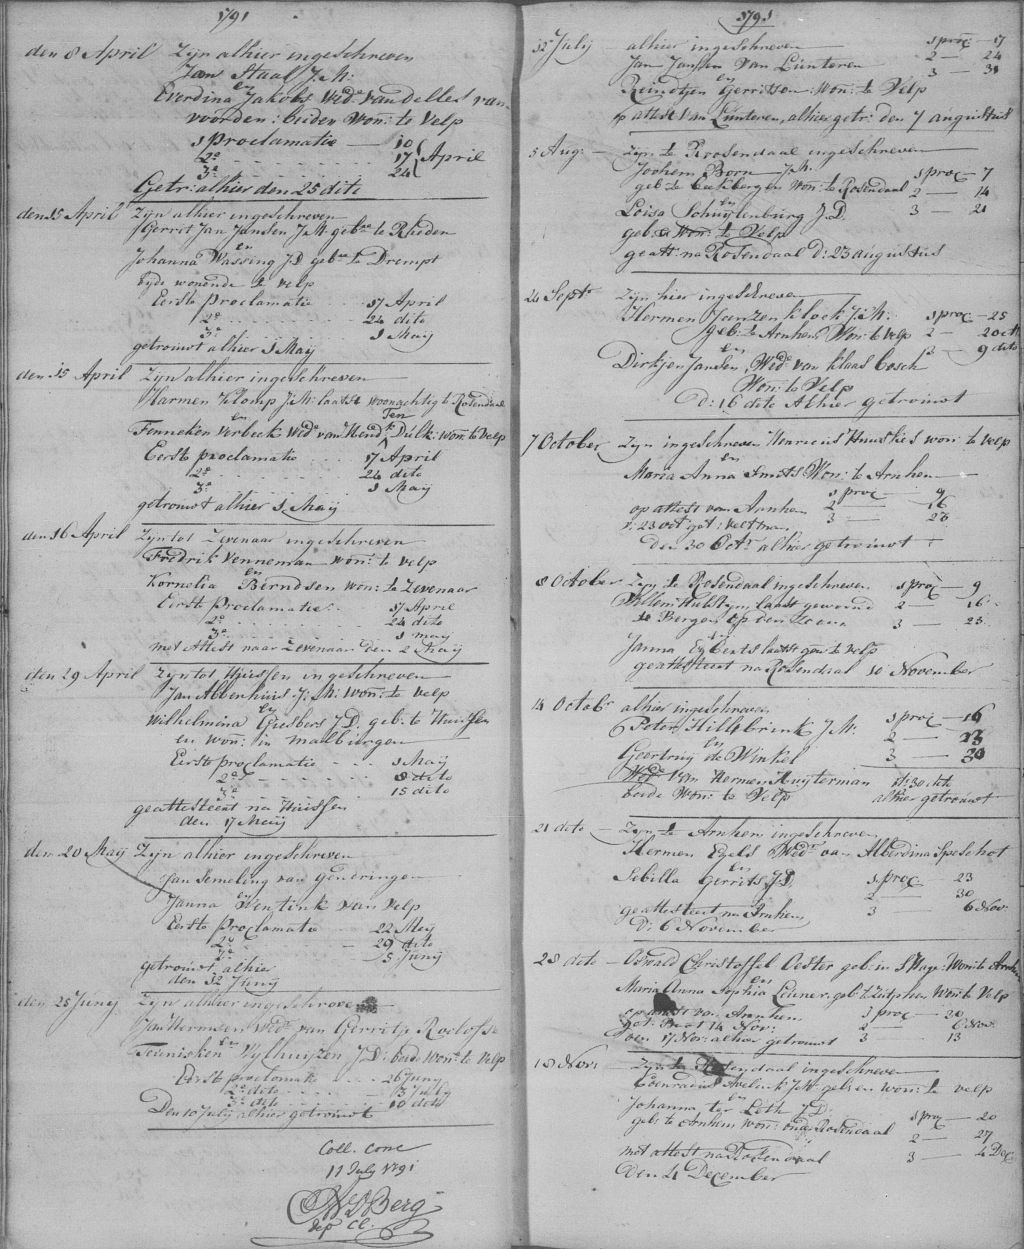 1791
den 8 April Zijn alhier ingeschreven
Jan Staal J:M:
en
Everdina Jakobs Wede van dellest van
voorden: beiden Won: te Velp
1 proclamatie — 10
2e - - - - 17 April
3e - - - - 24
Getr: alhier den 25 dito
den 15 April Zijn alhier ingeschreven
Gerrit Jan Jansen J:M: geb: te Rheden
en
Johanna Wassing J:D geb: te Drempt
beyde wonende te velp
Eerste proclamatie - - 17 April
2e - - - - 24 dito
3e - - - - 1 Maij
getrouwt alhier 1 Maij
den 15 April Zijn alhier ingeschreven
Harmen Klomp J:M: laatst woonachtig te Rosendaal
en
Ten
Fenneken Verbeek Wede van Hendk Dulk: won: te Velp
Eerste proclamatie - - 17 April
2e - - - - 24 dito
3e - - - - 1 Maij
getrouwt alhier 1 Maij
den 16 April Zijn tot Zevenaar ingeschreven
Fredrik Venneman won: te velp
en
Kornelia Berndsen won: te Zevenaar
Eerste proclamatie - - 17 April
2e - - - - 24 dito
3e - - - - 1 maij
met Attest naar Zevenaar den 2 Maij
den 29 April Zijn tot Huissen in geschreven
Jan Abbenhuis J:M: won: te velp
en
Wilhelmina Giesbers J:D. geb: te Huissen
en won: in malburgen
Eerste proclamatie - - 1 Maij
2e - - - - 8 dito
3e - - - - 15 dito
geattesteert na Huissen
den 17 Maij
den 20 Maij Zijn alhier ingeschreven
Jan Semeling van Gendringen
en
Janna Wentink van Velp
Eerste proclamatie - - 22 Meij
2e - - - - 29 dito
3e - - - - 5 Junij
getrouwt alhier
den 12 Junij
den 25 Junij Zijn alhier ingeschreven
Jan Hermsen Wede van Gerritje Roelofse
en
Teunisken Wylhuijzen J:D: beide Won: te Velp
Eerste proclamatie - - 26 Junij
2e dito - - 3 Julij
3e dito - - 10 dito
Den 10 Julij alhier getrouwt
Coll. conc
11 July 1791
VDBerg
dep Cl.
1791
15 July — alhier ingeschreven 1 proc — 17
Jan Jansen van Lunteren 2 — 24
en 3 — 31
Reindtjen Gerritsen won: te Velp
op attest van Lunteren, alhier getr: den 7 augustus
5 Aug: — Zijn te Rosendaal ingeschreven
Jochem Born J:M. 1 proc — 7
geb: te Beekbergen won: te Rosendaal 2 — 14
en 3 — 21
Loisa Schuijlenburg J.D.
geb: en Won: te Velp
geatt: na Rosendaal d: 23 augustus
24 Septr Zijn hier ingeschreven
Hermen Janzen Klock J:M: 1 proc — 25
geb: te Arnhem Won: te Velp 2 — 2 Oct
en 3 — 9 dito
Dirkjen Jansen, Wede van Klaas Bosch
Won: te Velp
d: 16 dito Alhier getrouwt
7 October Zijn ingeschreven Henricus Huiskes won: te Velp
en
Maria Anna Smits Won: te Arnhem
1 proc — 9
op attest van Arnhem 2 — 16
3 — 23
den 30 Octr alhier getrouwt
8 October Zijn te Rosendaal ingeschreven 1 proc — 9
Willem laast gewoond 2 — 16
te Bergen op den Zoom 3 — 23
en
Janna Egberts laatst gew: te Velp
geattesteert na Rosendaal 10 November
14 Octobr alhier ingeschreven
Peter Hillebrink J:M. 1 proc — 16
en 2 — 23
Geertruij de Winkel 3 — 30
Wede van Hermen Kuyterman d: 30 Oct
beide Won: te Velp alhier getrouwt
21 dito — Zijn te Arnhem ingeschreven
Hermen Egels Wedr van Alberdina Speschot
en
Sebilla Gerrits J:D. 1 proc — 23
2 — 30
geattesteert na Arnhem 3 — 6 Nov:
d: 6 November
28 dito — Oswald Christoffel Oester geb: in s Hage Won: te Arnhem
en
Maria Anna Sophia Lehner, geb: te Zutphen Won: te Velp
op attest van Arnhem 1 proc — 30
2 — 6 Nov:
den 17 Nov: alhier getrouwt 3 — 13
18 Nov: Zijn te Rosendaal ingeschreven
Coenradus Avelink J:M geb: en won: te velp
en
Johanna ter Loth J:D: 1 proc — 20
geb: te Arnhem won: onder Rosendaal 2 — 27
met attest na Rosendaal 3 — 4 Dec:
den 4 December